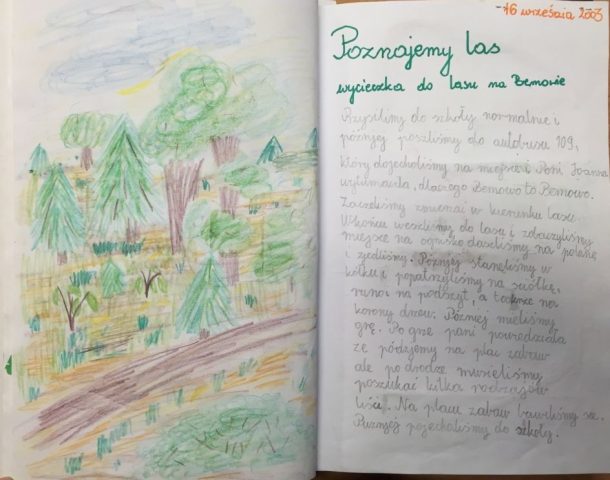 16 września 2003
Poznajemy las
wycieczka do lasu na Bemowie
Przyszliśmy do szkoły normalnie i
później poszliśmy do autobusu 109,
który dojechaliśmy na miejsce i Pani Joanna
wytłumaczła, dlaczego Bemowo to Bemowo.
Zaczeliśmy zmierzać w kierunku lasu.
Wkońcu weszliśmy do lasu i zobaczyliśmy
miejsce na ognisko doszliśmy na polanę
i zjedliśmy. Później staneliśmy w
kółku i popatrzyliśmy na sciółkę,
runo i na podszyt, a także na
korony drzew. Później mieliśmy
grę. Po grze pani powiedziała
że pójdziemy na plac zabaw
ale po drodze musieliśmy
poszukać kilka rodzajów
liści. Na placu zabaw bawiliśmy se.
Puzniej pojechaliśmy do szkoły.